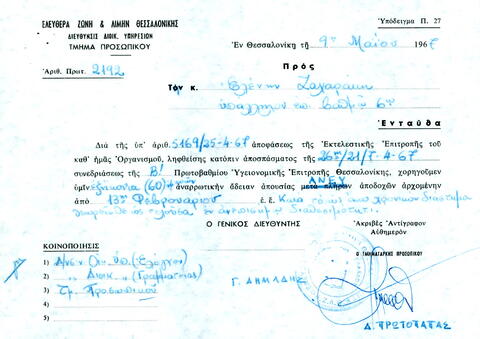 ΕΛΕΥΘΕΡΑ ΖΩΝΗ & ΛΙΜΗΝ ΘΕΣΣΑΛΟΝΙΚΗΣ
ΔΙΕΥΘΥΝΣΙΣ ΔΙΟΙΚ. ΥΠΗΡΕΣΙΩΝ
ΤΜΗΜΑ ΠΡΟΣΩΠΙΚΟΥ
Ὑπόδειγμα Π. 27
Ἐν Θεσσαλονίκῃ τῇ 9ῃ Μαΐου 1967
Ἀριθ. Πρωτ. 2192
Πρὸς
Τὸν κ. Ἑλένην
ὑπάλληλον ἐπὶ βαθμῷ 6ῳ
Ἐνταῦθα
Διὰ τῆς ὑπ' ἀριθ. 5169/25-4-67 ἀποφάσεως τῆς Ἐκτελεστικῆς Ἐπιτροπῆς τοῦ
καθ' ἡμᾶς Ὀργανισμοῦ, ληφθείσης κατόπιν ἀποσπάσματος τῆς 26ης/21/Γ-4-67
συνεδριάσεως τῆς Β! Πρωτοβαθμίου Ὑγειονομικῆς Ἐπιτροπῆς Θεσσαλονίκης, χορηγοῦμεν
ὑμῖν ἑξήκοντα (60) ἀναρρωτικὴν ἄδειαν ἀπουσίας μετὰ πλήρων ΑΝΕΥ ἀποδοχῶν ἀρχομένην
ἀπὸ 13ης Φεβρουαρίου ἐ. ἔ.
Ο ΓΕΝΙΚΟΣ ΔΙΕΥΘΥΝΤΗΣ
Ἀκριβὲς Ἀντίγραφον
Αὐθημερόν
Ο ΤΜΗΜΑΤΑΡΧΗΣ ΠΡΟΣΩΠΙΚΟΥ
ΚΟΙΝΟΠΟΙΗΣΙΣ
1) Δ/νσιν Οἰκ. Ὑπ.
2) " Διοικ. " (Γραμματείας)
3) Τμ. Προσωπικοῦ
Γ. ΔΗΜΑΔΗΣ
Δ. ΠΡΩΤΟΠΑΠΑΣ